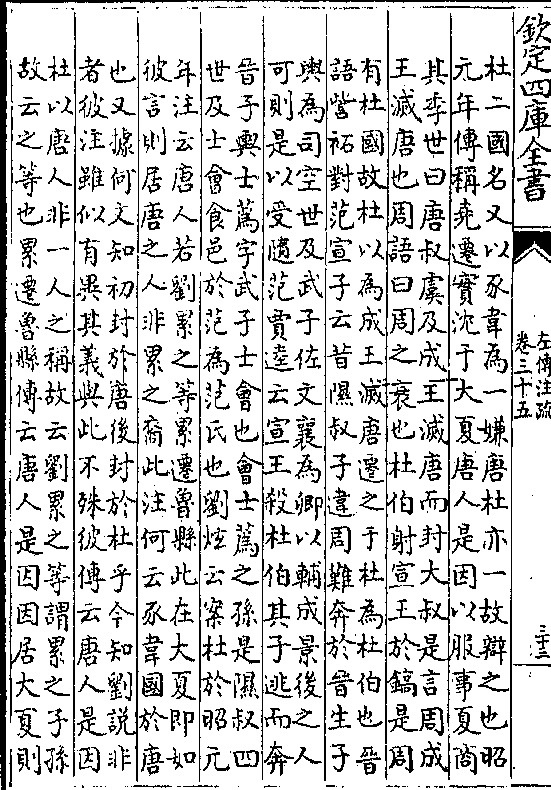 欽定四庫全書
左傳注疏
卷三十五
三十三
杜二國名又以豕韋為一嫌唐杜亦一故辯之也昭
元年傳稱堯遷實沈于大夏唐人是因以服事夏商
其季世曰唐叔虞及成王滅唐而封大叔是言周成
王滅唐也周語曰周之衰也杜伯射宣王於鎬是周
有杜國故杜以為成王滅唐遷之于杜為杜伯也晉
語訾祏對范宣子云昔隰叔子違周難奔於晉生子
輿為司空世及武子佐文襄為卿以輔成景後之人
可則是以受隨范賈逵云宣王殺杜伯其子逃而奔
晉子輿士蒍字武子士會也會士蒍之孫是隰叔四
世及士會食邑於范為范氏也劉炫云案杜於昭元
年注云唐人若劉累之等累遷魯縣此在大夏即如
彼言則居唐之人非累之裔此注何云豕韋國於唐
也又據何文知初封於唐後封於杜乎今知劉說非
者彼注雖似有異其義與此不殊彼傳云唐人是因
杜以唐人非一人之稱故云劉累之等謂累之子孫
故云之等也累遷魯縣傳云唐人是因因居大夏則